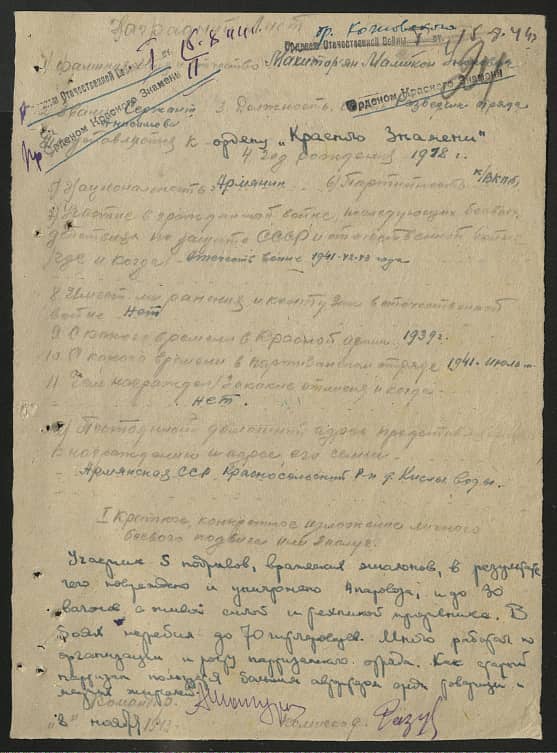 Наградной лист
бр. Котовского
Орденом Отечественной Войны I ст. 15-8-44г
Орденом Отечественной Войны I ст.
Орденом Красного Знамени
1) Фамилия, имя и отчество Махиторян Мамикон
Орденом Красного Знамени
2. Звание Сержант 3. Должность, разведчик отряда
Представляется к ордену „Красного Знамени"
4. Год рождения 1918 г.
5) Национальность Армянин 6) Партийность к/ВКПб
7) Участие в гражданской войне, последующих боевых
действиях по защите СССР и отечественной войне
/где и когда/ Отечеств. войне 1941-42-43 года
8. Имеет ли ранения и контузии в отечественной
войне нет
9. С какого времени в Красной армии 1939г.
10. С какого времени в партизанском отряде 1941- июль м.
11 Чем награжден /за какие отличия и когда
нет.
12) Постоянный домашний адрес представляемого
к награждению и адрес его семьи
Армянская ССР Красносельский Р-н д. Кислы воды.
I Краткое, конкретное изложение личного
боевого подвига или заслуг.
Участник 5 подрывов, вражеских эшалонов, в результате
чего повреждено и уничтожено 4 паровоза, и до 30
вагонов с живой силой и техникой противника. В
боях перебил до 70 гитлеровцев. Много работал по
организации и росту партизанского отряда. Как старый
партизан пользуется большим авторитетом среди товарищей и
местных жителей.
Командир
Комиссар
"8" ноября 1943г.